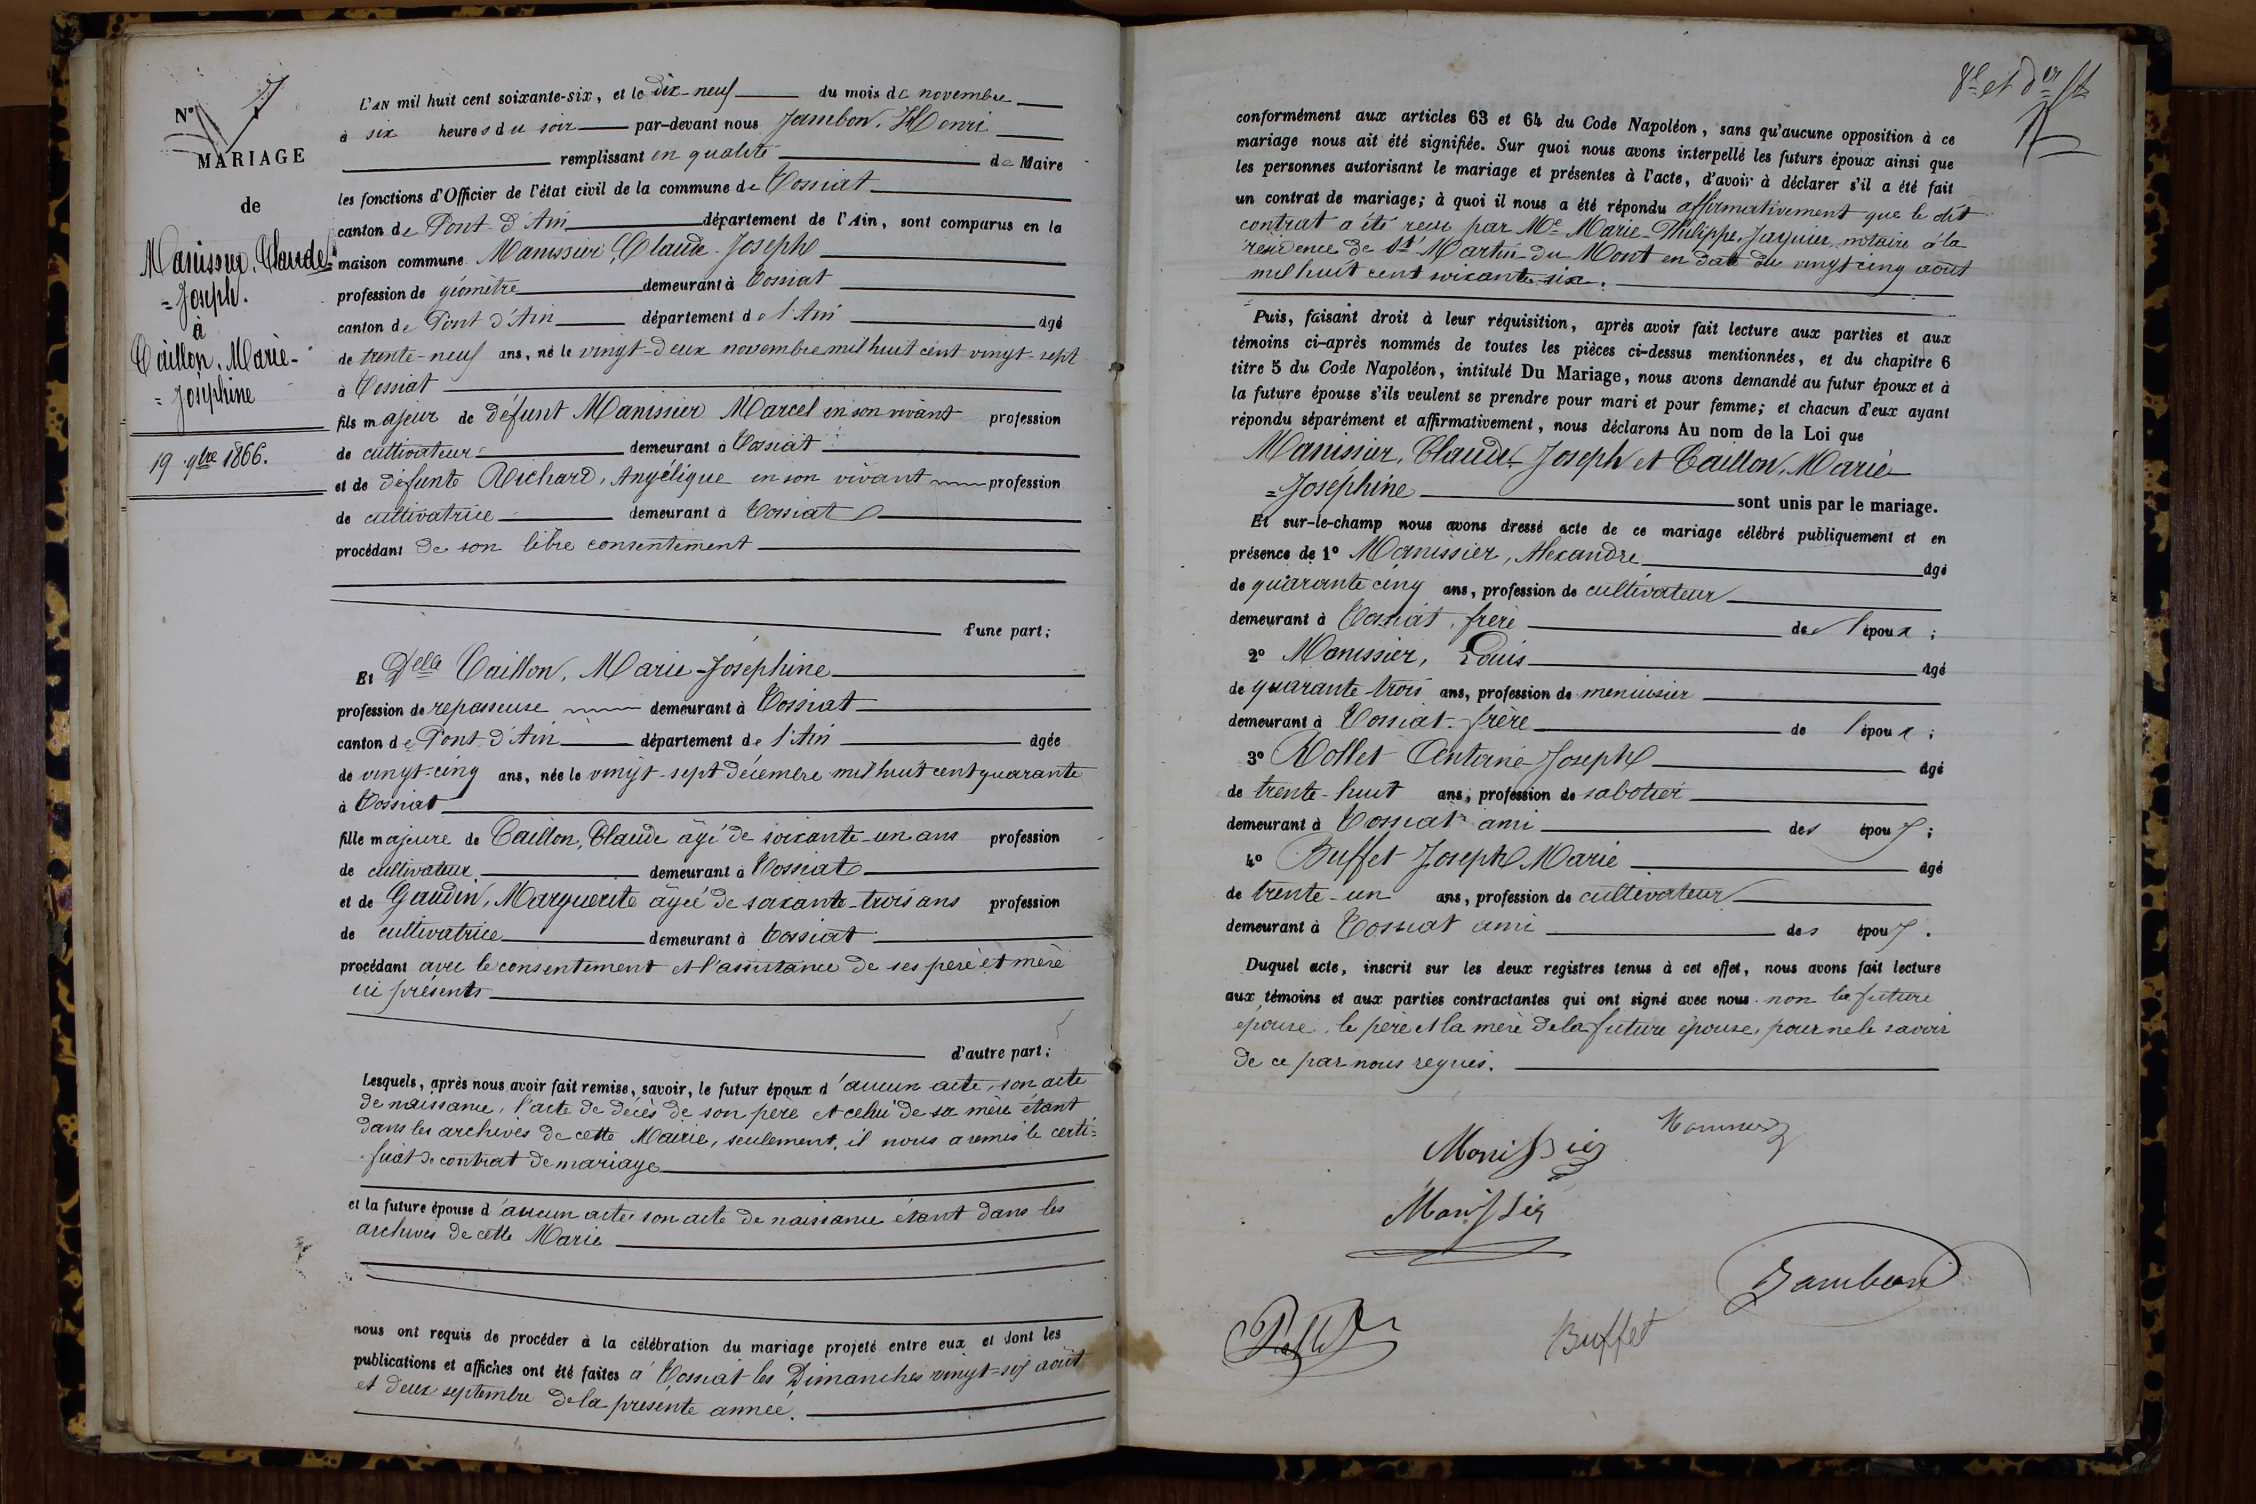 N° 7
MARIAGE
de
Manissier, Claude
= Joseph.
à
Taillon, Marie-
= Joséphine
19 9bre 1866.
L'AN mil huit cent soixante-six, et le dix-neuf du mois de novembre
à six heures du soir par-devant nous Jambon, Henri
remplissant en qualité de Maire
les fonctions d'Officier de l'état civil de la commune de Tossiat
canton de Pont d'Ain département de l'Ain, sont comparus en la
maison commune Manissier, Claude-Joseph
profession de géomètre demeurant à Tossiat
canton de Pont d'Ain département de l'Ain âgé
de trente-neuf ans, né le vingt-deux novembre mil huit cent vingt-sept
à Tossiat
fils majeur de défunt Manissier Marcel en son vivant profession
de cultivateur demeurant à Tossiat
et de défunte Richard, Angélique en son vivant profession
de cultivatrice demeurant à Tossiat
procédant de son libre consentement
d'une part;
Et Delle Taillon, Marie-Joséphine
profession de repasseuse demeurant à Tossiat
canton de Pont d'Ain département de l'Ain âgée
de vingt-cinq ans, née le vingt-sept décembre mil huit cent quarante
à Tossiat
fille majeure de Taillon, Claude âgé de soixante-un ans profession
de cultivateur demeurant à Tossiat
et de Gaudin, Marguerite âgée de soixante-trois ans profession
de cultivatrice demeurant à Tossiat
procédant avec le consentement et l'assistance de ses père et mère
ici présents
d'autre part;
Lesquels, après nous avoir fait remise, savoir, le futur époux d'aucun acte, son acte
de naissance, l'acte de décès de son père et celui de sa mère étant
dans les archives de cette Mairie, seulement, il nous a remis le certi=
ficat de contrat de mariage
et la future épouse d'aucun acte son acte de naissance étant dans les
archives de cette Marie
nous ont requis de procéder à la célébration du mariage projeté entre eux et dont les
publications et affiches ont été faites à Tossiat les Dimanches vingt-six août
et deux septembre de la présente année.
8e et der ft
conformément aux articles 63 et 64 du Code Napoléon, sans qu'aucune opposition à ce
mariage nous ait été signifiée. Sur quoi nous avons interpellé les futurs époux ainsi que
les personnes autorisant le mariage et présentes à l'acte, d'avoir à déclarer s'il a été fait
un contrat de mariage; à quoi il nous a été répondu affirmativement que le dit
contrat a été reçu par Me Marie-Philippe, Jaynier, notaire à la
résidence de St Martin du Mont en date du vingt cinq août
mil huit cent soixante six.
Puis, faisant droit à leur réquisition, après avoir fait lecture aux parties et aux
témoins ci-après nommés de toutes les pièces ci-dessus mentionnées, et du chapitre 6
titre 5 du Code Napoléon, intitulé Du Mariage, nous avons demandé au futur époux et à
la future épouse s'ils veulent se prendre pour mari et pour femme; et chacun d'eux ayant
répondu séparément et affirmativement, nous déclarons Au nom de la Loi que
Manissier, Claude-Joseph et Taillon, Marie
= Joséphine sont unis par le mariage.
Et sur-le-champ nous avons dressé acte de ce mariage célébré publiquement et en
présence de 1° Manissier, Alexandre âgé
de quarante cinq ans, profession de cultivateur
demeurant à Tossiat, frère de l'époux;
2° Manissier, Louis âgé
de quarante-trois ans, profession de menuisier
demeurant à Tossiat frère de l'époux;
3° Rollet Antoine Joseph âgé
de trente-huit ans, profession de sabotier
demeurant à Tossiat ami des époux;
4° Buffet Joseph Marie âgé
de trente-un ans, profession de cultivateur
demeurant à Tossiat ami des époux.
Duquel acte, inscrit sur les deux registres tenus à cet effet, nous avons fait lecture
aux témoins et aux parties contractantes qui ont signé avec nous non la future
épouse, le père et la mère de la future épouse, pour ne le savoir
de ce par nous requis.
Manissier
Manissier
Jambon
Buffet